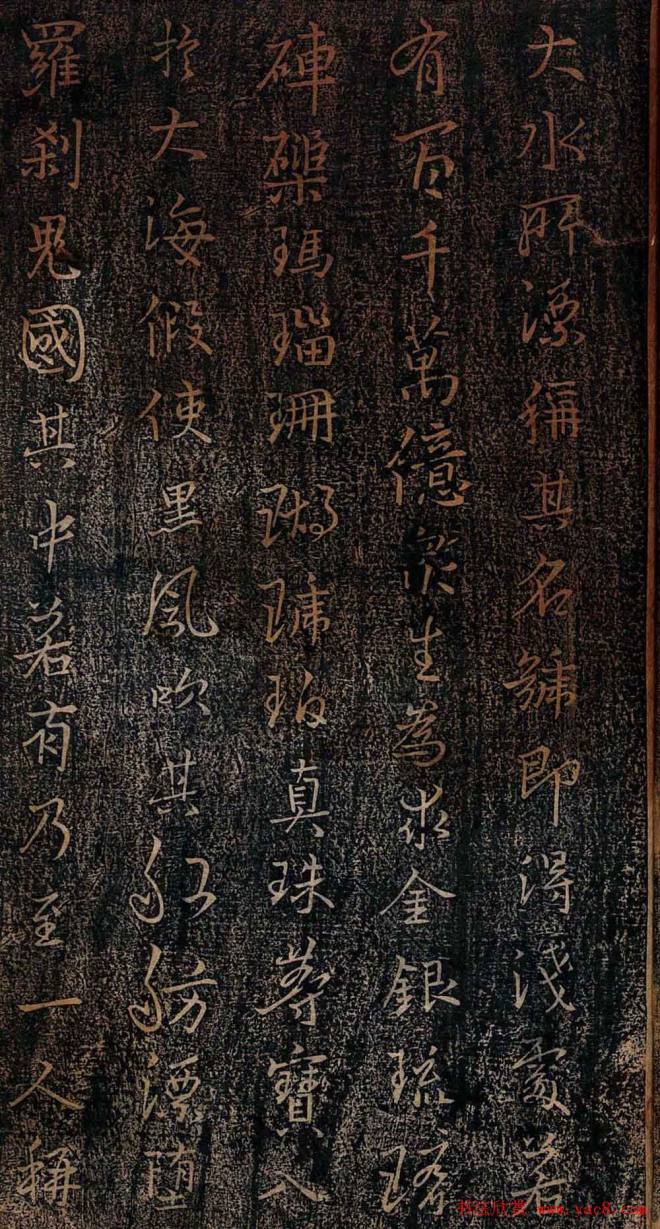 大水所漂稱其名號即得淺處若
有百千萬億眾生為求金銀琉璃
硨磲瑪瑙珊瑚琥珀真珠等寶入
於大海假使黑風吹其船舫漂墮
羅剎鬼國其中若有乃至一人稱
书法欣赏 www.yac8.com